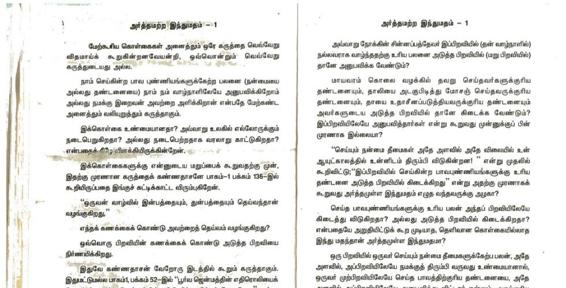 அர்த்தமற்ற இந்துமதம் – 1
மேற்கூறிய கொள்கைகள் அனைத்தும் ஒரே கருத்தை வெவ்வேறு
விதமாய்க் கூறுகின்றனவேயன்றி, ஒவ்வொன்றும் வெவ்வேறு
கருத்துடையது அல்ல.
நாம் செய்கின்ற பாவ புண்ணியங்களுக்கேற்ற பலனை (நன்மையை
அல்லது தண்டனையை) நாம் நம் வாழ்நாளிலேயே அனுபவிக்கிறோம்
அல்லது நமக்கு இறைவன் அவற்றை அளிக்கிறான் என்பதே மேற்கண்ட
அனைத்தும் வலியுறுத்தும் கருத்தாகும்.
இக்கொள்கை உண்மையானதா? அவ்வாறு உலகில் எல்லோருக்கும்
நடைபெறுகிறதா? அல்லது நடைபெற்றதாக வரலாறு காட்டுகிறதா?
என்பதைச் சற்று பார்க்கிறேன்.
இக்கொள்கைகளுக்கு என்னுடைய மறுப்பைக் கூறுவதற்கு முன்,
இதற்கு முரணான கருத்தைக் கண்ணதாசனே பாகம்–1 பக்கம் 136–இல்
கூறியிருப்பதை இங்குச் சுட்டிக்காட்ட விரும்புகிறேன்.
“ஒருவன் வாழ்வில் இன்பத்தையும், துன்பத்தையும் தெய்வந்தான்
வழங்குகிறது.”
எந்தக் கணக்கைக் கொண்டு அவற்றைத் தெய்வம் வழங்குகிறது?
ஒவ்வொரு பிறவியின் கணக்கைக் கொண்டு அடுத்த பிறவியை
நிர்ணயிக்கிறது.
இதுவே கண்ணதாசன் வேறோரு இடத்தில் கூறும் கருத்தாகும்.
இதுமட்டுமல்ல பாகம்1, பக்கம் 52–இல் “பூர்வ ஜென்மத்தின் எதிரொலியைக்
அர்த்தமற்ற இந்துமதம் – 1
அவ்வாறு நோக்கின் சின்னப்பத்தேவர் இப்பிறவியில் (தன் வாழ்நாளில்)
நல்லவராக வாழ்ந்ததற்கு உரிய பலனை அடுத்த பிறவியில் (மறு பிறவியில்)
தானே அனுபவிக்க வேண்டும்?
மாயவரம் கொலை வழக்கில் தவறு செய்தவர்களுக்குரிய
தண்டனையும், தாலியை அடகுபிடித்து மோசஞ் செய்தவருக்குரிய
தண்டனையும், தாயை உதாசீனப்படுத்தியவருக்குரிய தண்டனையும்
அவர்களுடைய அடுத்த பிறவியில் தானே கிடைக்க வேண்டும்?
இப்பிறவியிலேயே அனுபவித்தார்கள் என்று கூறுவது முன்னுக்குப் பின்
முரணாக இல்லையா?
“செய்யும் நன்மை தீமைகள் அதே அளவில், அதே நிலையில் உன்
ஆயுட்காலத்தில் உன்னிடம் திரும்பி விடுகின்றன! ” என்று முதலில்
கூறிவிட்டு;“இப்பிறவியில் செய்கின்ற பாவபுண்ணியங்களுக்கு உரிய
தண்டனை அடுத்த பிறவியில் கிடைக்கிறது” என்று அதற்கு முரணாகக்
கூறுவது அர்த்தமுள்ள இந்துமதம் எழுத வந்தவருக்கு அழகா?
செய்த பாவபுண்ணியங்களுக்கு உரிய பலன் அந்தப் பிறவியிலேயே
கிடைத்து விடுகிறதா? அல்லது அடுத்த பிறவியில் கிடைக்கிறதா?
என்பதையே அறுதியிட்டுக் கூற முடியாத, தெளிவான கொள்கையில்லாத
இந்து மதந்தான் அர்த்தமுள்ள இந்துமதமா?
ஒரு பிறவியில் ஒருவர் செய்யும் நன்மை தீமைகளுக்கேற்ப பலன், அதே
அளவில், அப்பிறவியிலேயே நமக்குத் திரும்பி வருவது உண்மையானால்,
ஒருவர் முற்பிறவியிலேயே செய்த பாவத்திற்குரிய தண்டனையை, அதே